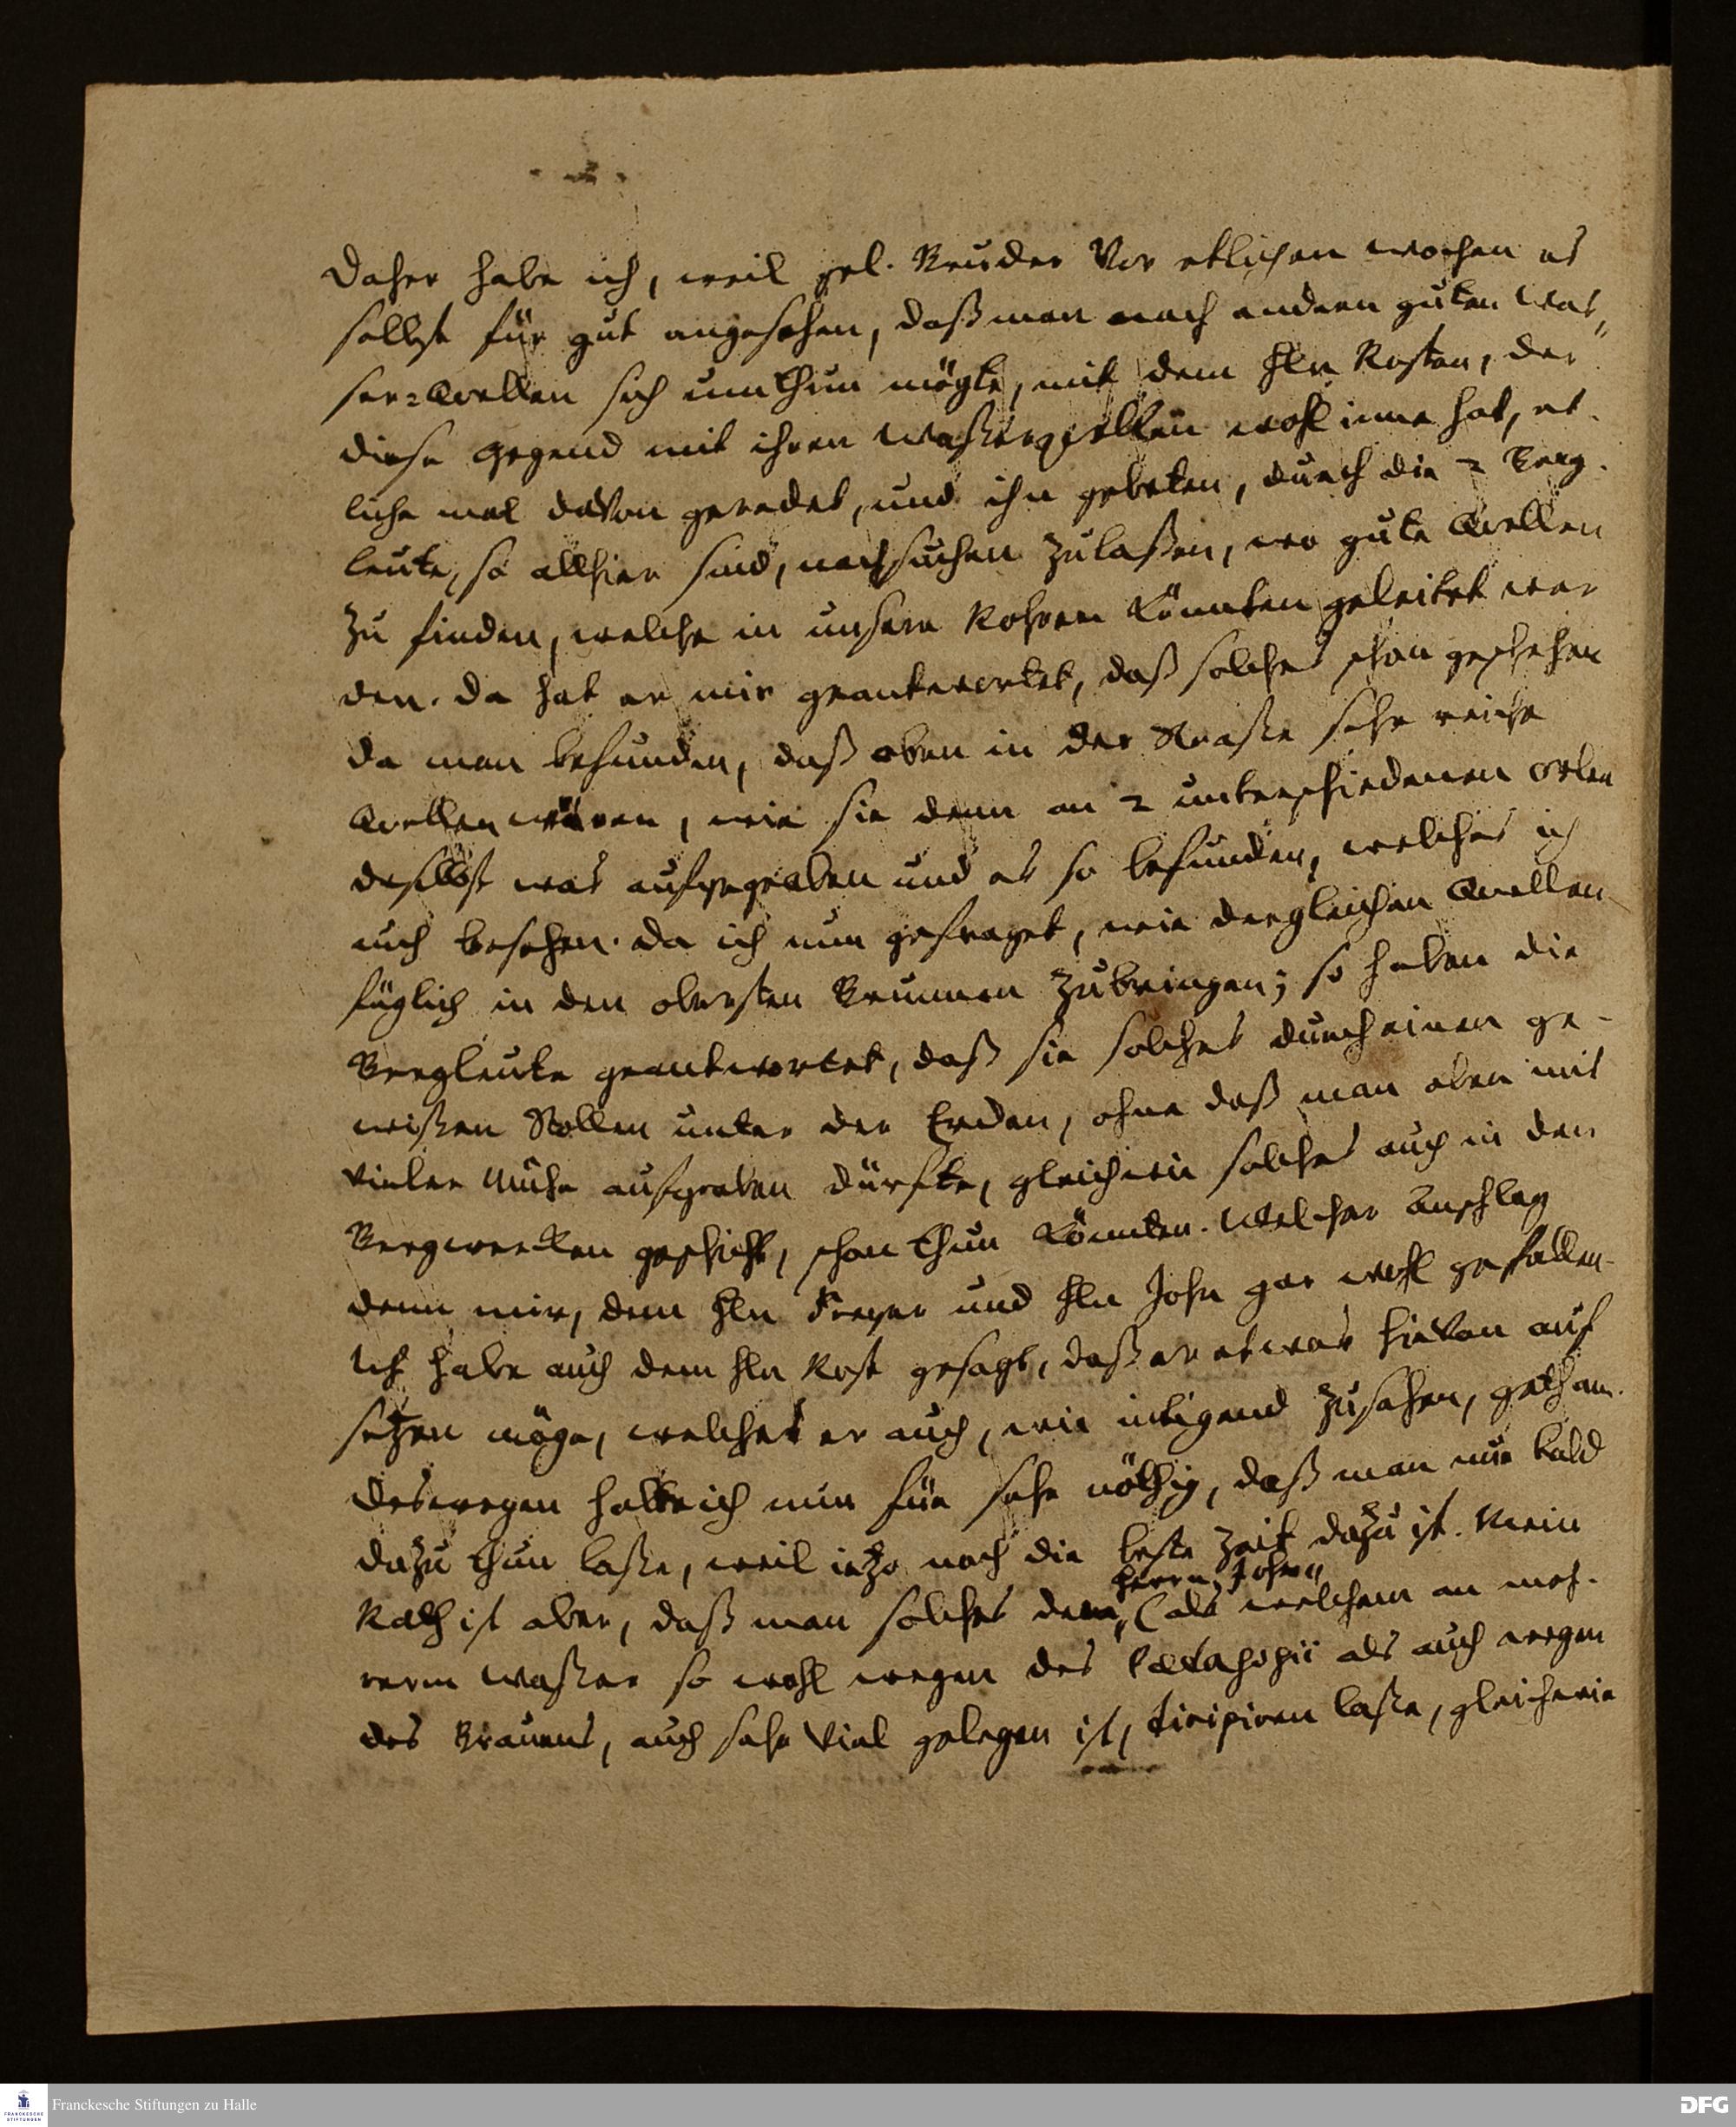 Daher habe ich, weil gel. Bruder Vor etlichen wochen es
selbst für gut angesehen, daß man nach andern guten Was„
ser=Qvellen sich umthun mögte, mit dem Hln Rosten, der
diese Gegend mit ihren Waßerqvellen wohl inne hat, et-
liche mal davon geredet, und ihn gebeten, durch die 2 Berg-
leute, so allhier sind, nachsuchen zulaßen, wo gute Qvellen
zu finden, welche in unsere Rohren könnten geleitet wer
den. Da hat er mir geantwortet, daß solches schon geschehen
da man befunden, daß oben in der Straße sehr reiche
Qvellen wären, wie sie denn an 2 unterschiedenen orten
daselbst was aufgegraben und es so befunden, welches ich
auch besehen. Da ich nun gefraget, wie dergleichen Qvellen
füglich in den obersten Brunnen zubringen; so haben die
Bergleute geantwortet, daß sie solches durch einen ge-
wißen Stollen unter der Erden, ohne daß man oben mit
vieler Mühe aufgraben dürfte, gleichwie solches auch in den
Bergwercken geschicht, schon thun könnten. Welcher Anschlag
denn mir, dem Hln Freyer und Hln John gar wohl gefallen.
Ich habe auch dem Hln Rost gesagt, daß er etwas hievon auf
setzen möge, welches er auch, wie inligend zusehen, gethan.
Deswegen halte ich nun für sehr nöthig, daß man nur bald
dazu thun laße, weil ietzo noch die beste Zeit dazu ist. Mein
Herrn John„
Rath ist aber, daß man solches dem„ (als welchem an meh-
rerm Waßer so wohl wegen des als auch wegen
des Brauens, auch sehr viel gelegen ist, laße, gleichwie
Franckesche Stiftungen zu Halle
DFG